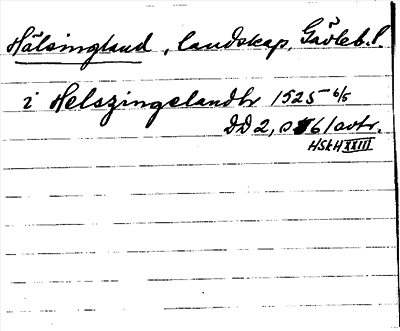 Hälsingland, landskap, Gävleb. l.
i Helszingelandhr 1525 6/5
DD 2, 061 avtr.
HSkH XXIII